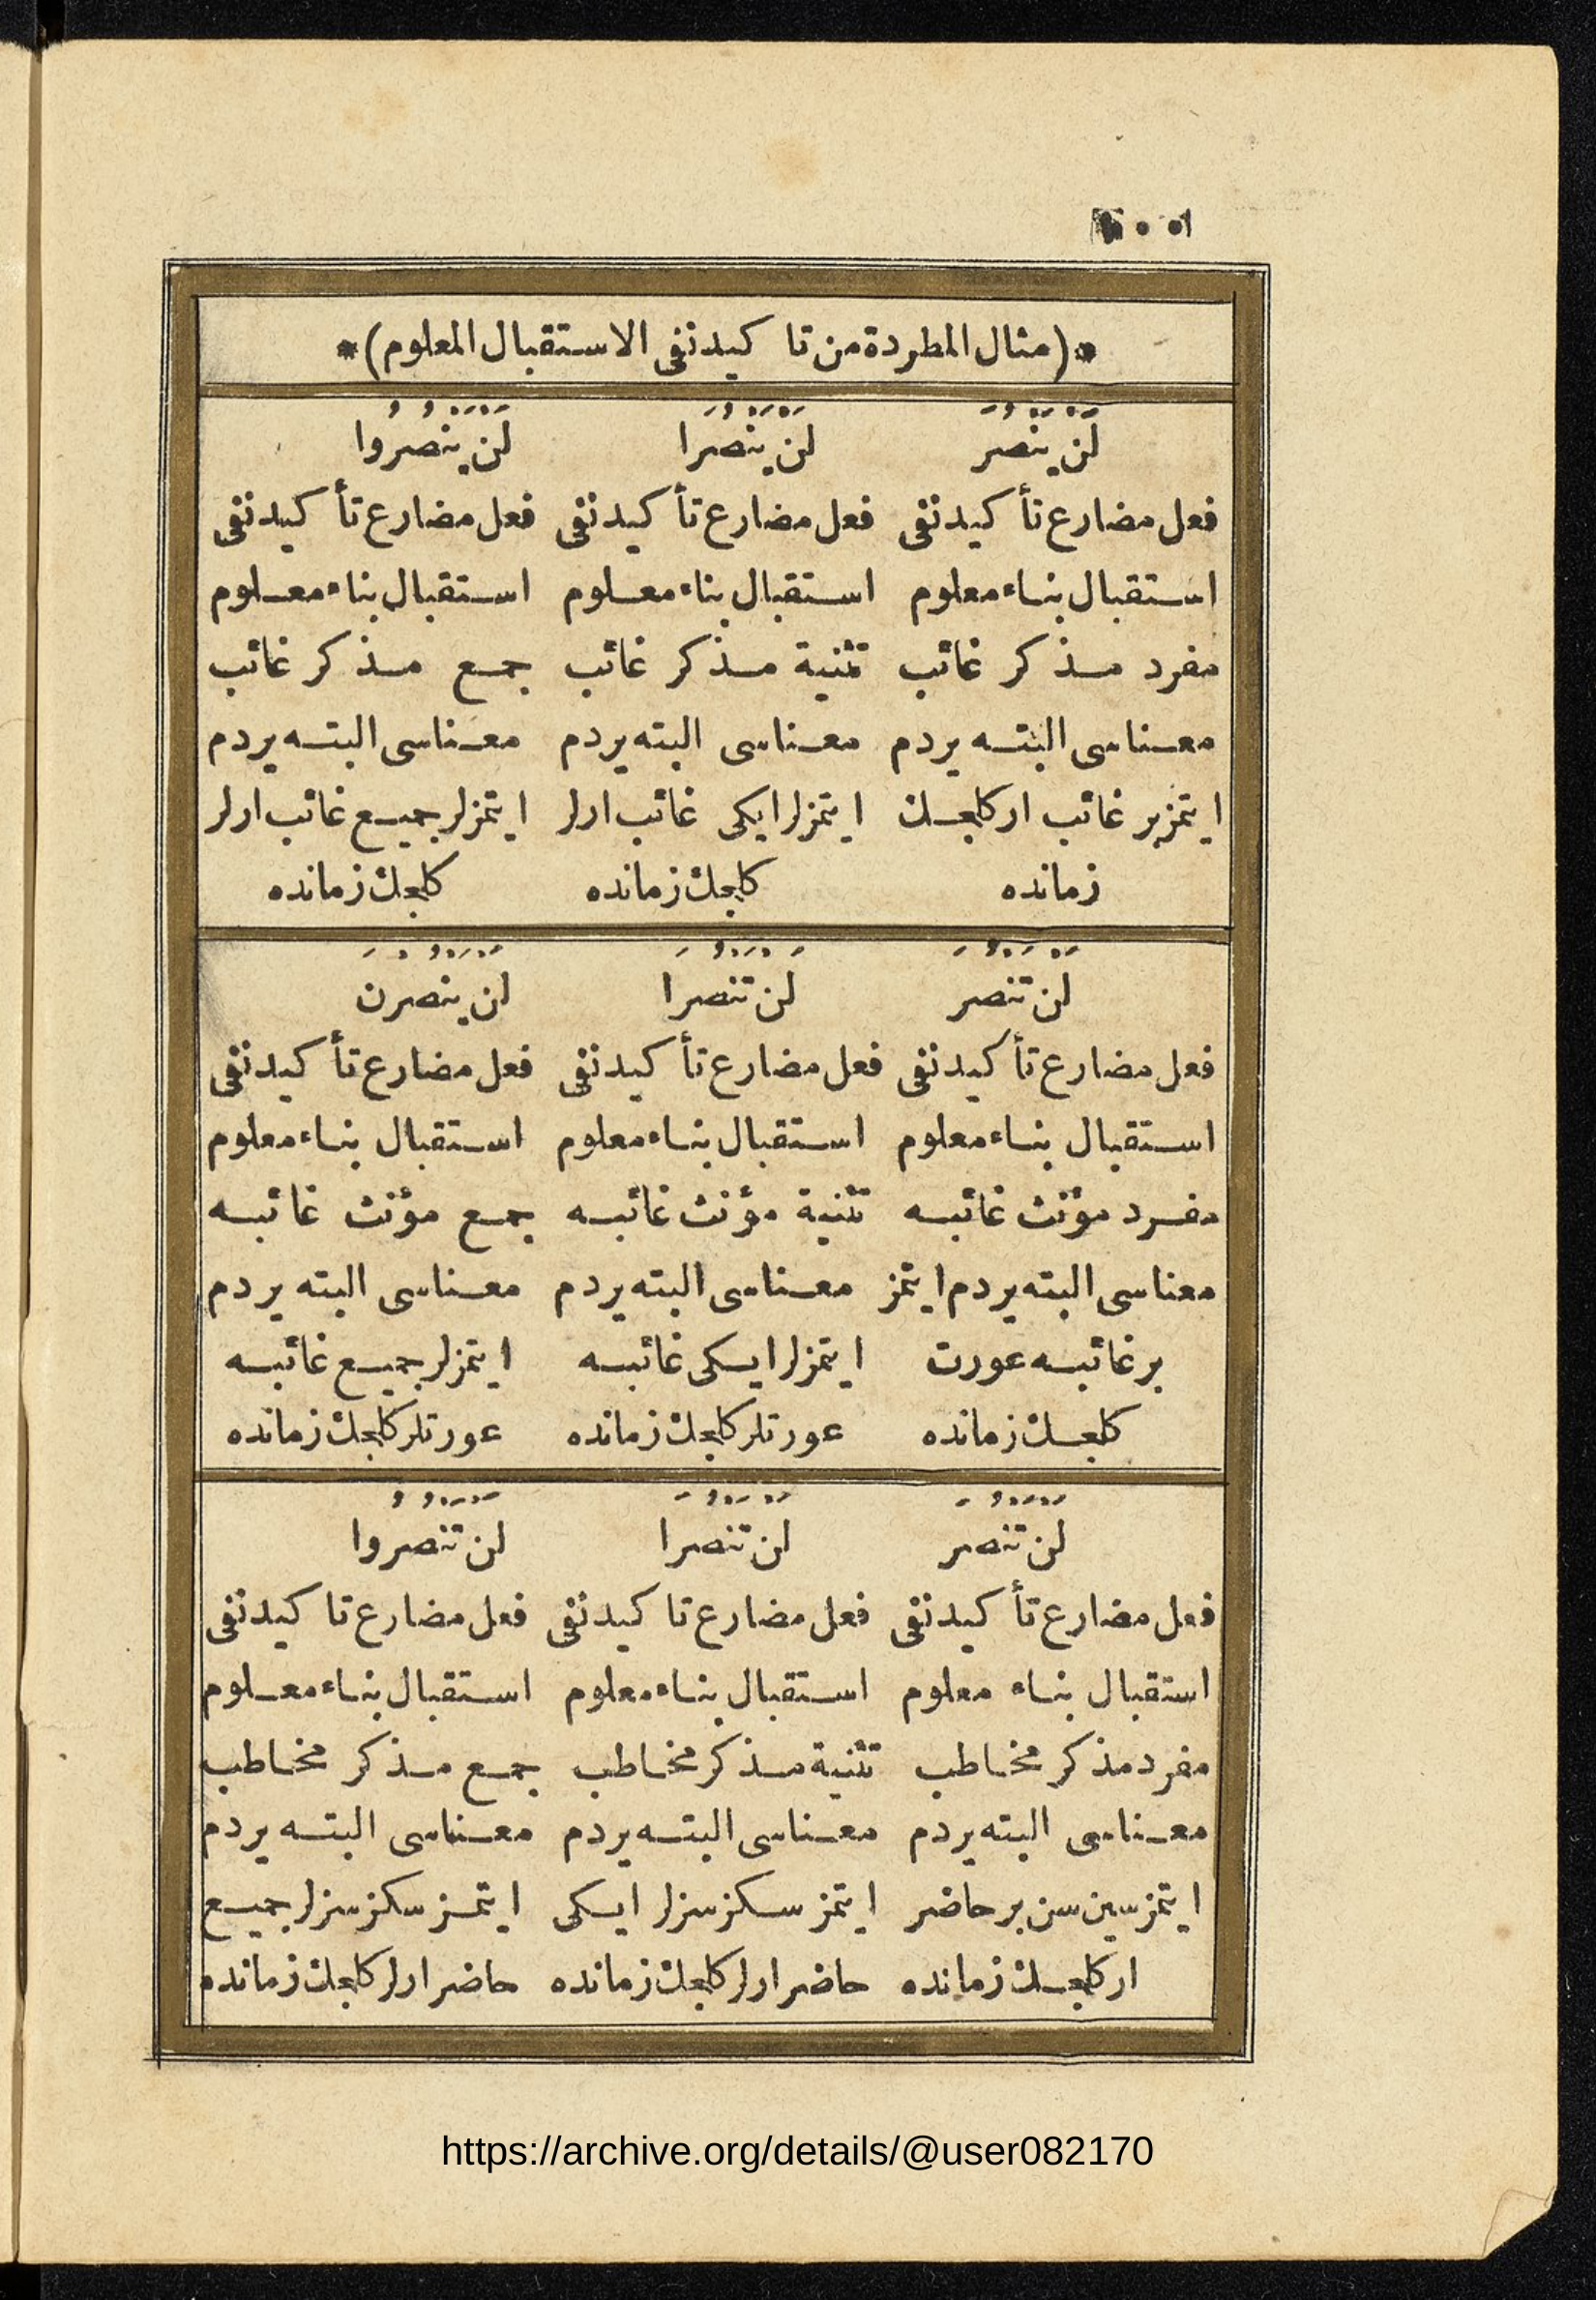 ٭(مثال المطردة من تا كيد نفى الاستقبال المعلوم)٭
لَنْ يَنْصُرَ لَنْ يَنْصُرَا لَنْ يَنْصُرُوا
فعل مضارع تأ كيد نفى فعل مضارع تأ كيد نفى فعل مضارع تأ كيد نفى
استقبال بناء معلوم استقبال بناء معلوم استقبال بناء معلوم
مفرد مذكر غائب تثنية مذكر غائب جمع مذكر غائب
معناسى البته يردم معناسى البته يردم معناسى البته يردم
ايتمز بر غائب ار كلجك ايتمزلر ايكى غائب ارلر ايتمزلر جميع غائب ارلر
زمانده كلجك زمانده كلجك زمانده
لَنْ تَنْصُرَ لَنْ تَنْصُرَا لَنْ يَنْصُرْنَ
فعل مضارع تأ كيد نفى فعل مضارع تأ كيد نفى فعل مضارع تأ كيد نفى
استقبال بناء معلوم استقبال بناء معلوم استقبال بناء معلوم
مفرد مؤنث غائبه تثنية مؤنث غائبه جمع مؤنث غائبه
معناسى البته يردم ايتمز معناسى البته يردم معناسى البته يردم
بر غائبه عورت ايتمزلر ايكى غائبه ايتمزلر جميع غائبه
كلجك زمانده عورتلر كلجك زمانده عورتلر كلجك زمانده
لَنْ تَنْصُرَ لَنْ تَنْصُرَا لَنْ تَنْصُرُوا
فعل مضارع تأ كيد نفى فعل مضارع تا كيد نفى فعل مضارع تا كيد نفى
استقبال بناء معلوم استقبال بناء معلوم استقبال بناء معلوم
مفرد مذكر مخاطب تثنية مذكر مخاطب جمع مذكر مخاطب
معناسى البته يردم معناسى البته يردم معناسى البته يردم
ايتمز سين سن بر حاضر ايتمز سكز سزلر ايكى ايتمز سكز سزلر جميع
ار كلجك زمانده حاضر ارلر كلجك زمانده حاضر ارلر كلجك زمانده
https://archive.org/details/@user082170